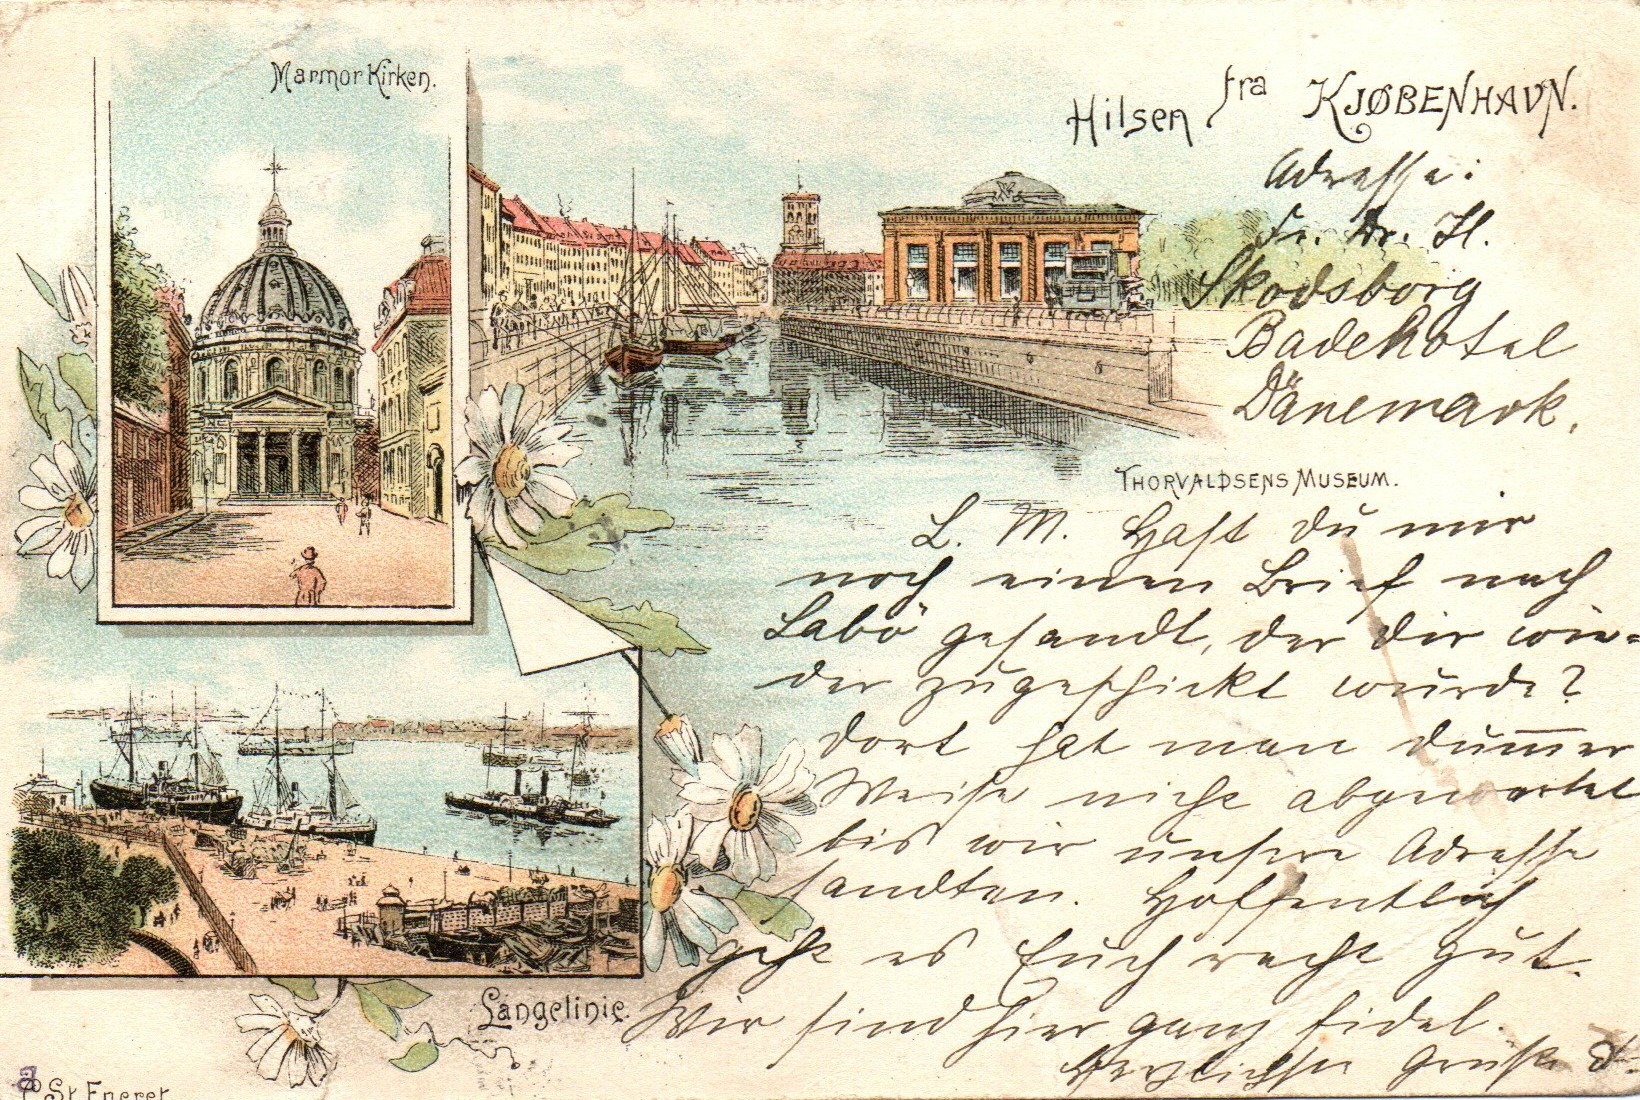 MarmorKirken.
Hilsen fra KJØBENHAVN.
Adresse:
Fr. Dr. H.
Skodsborg
Badehotel
Dänemark.
THORVALDSENS MUSEUM.
L. M. Hast du mir
noch einen Brief nach
Labö gesandt, der dir wie=
der zugeschickt wurde?
Dort hat man dummer
Weise nicht abgewartet
bis wir unsere Adresse
sandten. Hoffentlich
geht es Euch recht gut.
Wir sind hier ganz fidel.
Herzlichste Grüße
Langelinie.
St Eneret